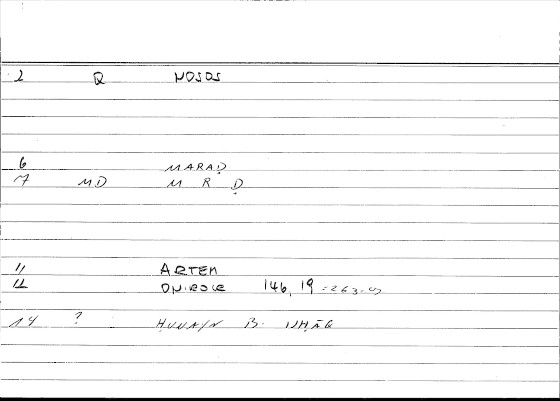 2 Q NOSOS
6 MARAḌ
7 MD M R Ḍ
11 ARTEM
12 ONIROCR 146, 19 = 263.
14 ? HUNAYN B. ISHĀQ